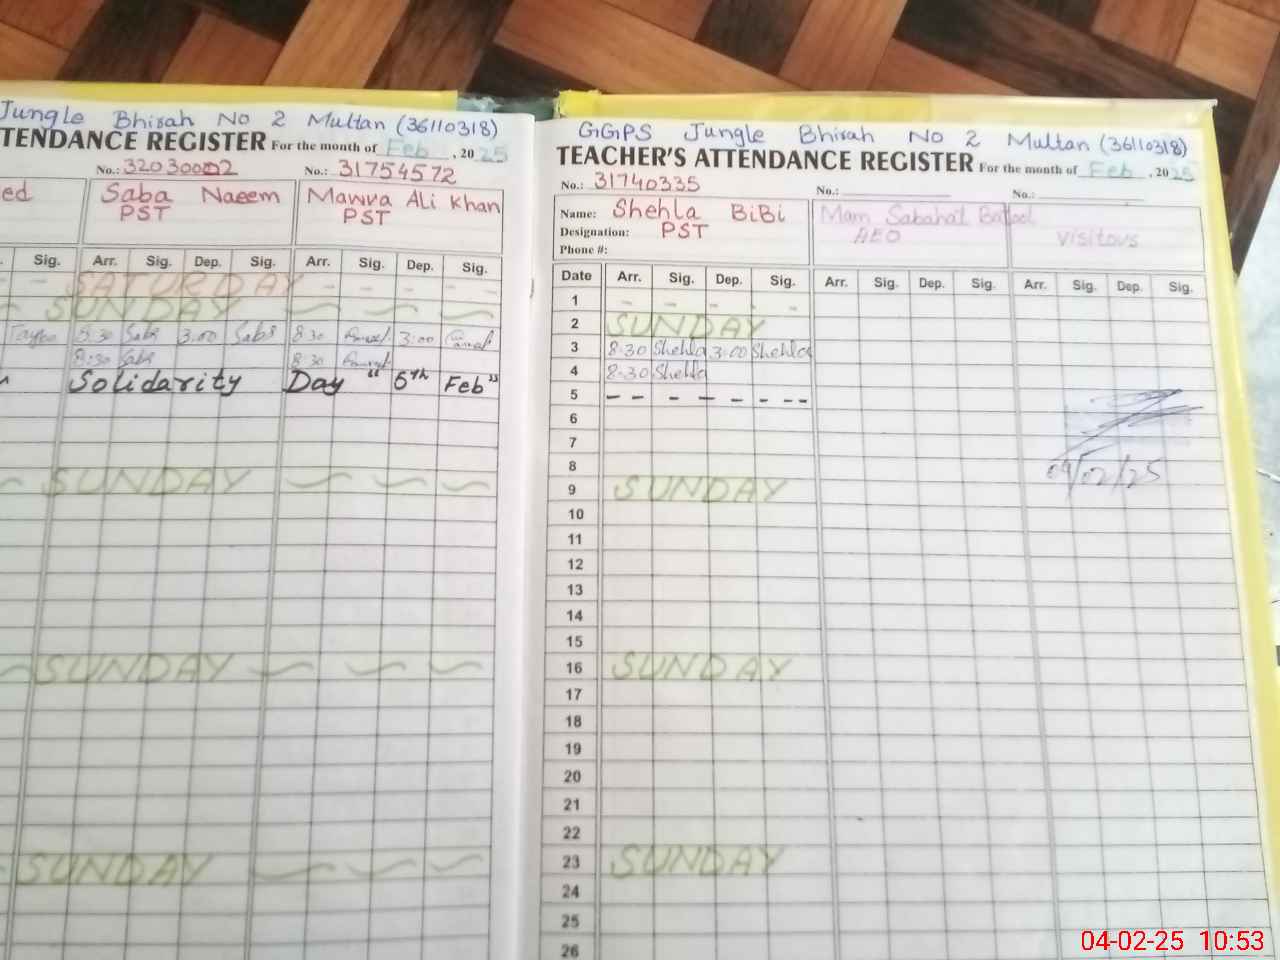 Jungle Bhisah No 2 Multan (36110318)
TENDANCE REGISTER For the month of Feb, 2025
No.: 32030002 No.: 31754572
ed Saba Naeem Mawra Ali Khan
PST PST
Sig. Arr. Sig. Dep. Sig. Arr. Sig. Dep. Sig.
- SATURDAY - - - -
SUNDAY
8:30 Sabs 3:00 Sabs 8:30 3:00
8:30 Sabs 8:30
Solidarity Day "5th Feb"
SUNDAY
SUNDAY
SUNDAY
GGPS Jungle Bhisah No 2 Multan (36110318)
TEACHER'S ATTENDANCE REGISTER For the month of Feb, 2025
No.: 31740335 No.: No.:
Name: Shehla BiBi Mam Sabahat Batool
Designation: PST AEO visitors
Phone #:
Date Arr. Sig. Dep. Sig. Arr. Sig. Dep. Sig. Arr. Sig. Dep. Sig.
1 - - - -
2 SUNDAY
3 8:30 Shehla 3:00 Shehla
4 8:30 Shehla
5 - - - - - - - -
6
7
8
04/02/25
9 SUNDAY
10
11
12
13
14
15
16 SUNDAY
17
18
19
20
21
22
23 SUNDAY
24
25
26
04-02-25 10:53